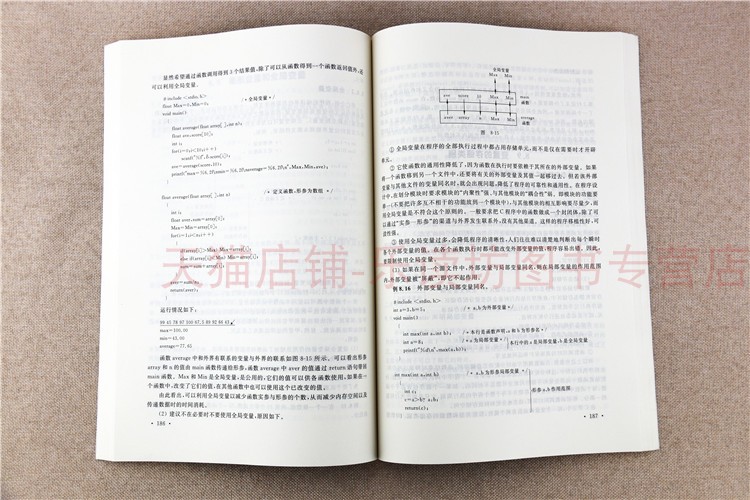 显然希望通过函数调用得到3个结果值,除了可以从函数得到一个函数返回值外,还
可以利用全局变量。
#include <stdio.h>
float Max=0,Min=0; /*全局变量*/
void main()
{
float average(float array[],int n);
float ave,score[10];
int i;
for(i=0;i<10;i++)
scanf("%f",&score[i]);
ave=average(score,10);
printf("max=%6.2f\nmin=%6.2f\naverage=%6.2f\n",Max,Min,ave);
}
float average(float array[],int n) /*定义函数,形参为数组*/
{
int i;
float aver,sum=array[0];
Max=Min=array[0];
for(i=1;i<n;i++)
{
if(array[i]>Max) Max=array[i];
else if(array[i]<Min) Min=array[i];
sum=sum+array[i];
}
aver=sum/n;
return(aver);
}
运行情况如下:
99 45 78 97 100 67.5 89 92 66 43
max=100.00
min=43.00
average=77.65
函数 average 中和外界有联系的变量与外界的联系如图 8-15 所示。可以看出形参
array 和 n 的值由 main 函数传递给形参,函数 average 中 aver 的值通过 return 语句带回
main 函数。Max 和 Min 是全局变量,是公用的,它们的值可以供各函数使用,如果在一
个函数中,改变了它们的值,在其他函数中也可以使用这个已改变的值。
由此看出,可以利用全局变量以减少函数实参与形参的个数,从而减少内存空间以及
传递数据时的时间消耗。
(2) 建议不在必要时不要使用全局变量,原因如下。
• 186 •
全局变量
Max Min
ave score 10 Max Min main
函数
aver array n Max Min average
函数
图 8-15
① 全局变量在程序的全部执行过程中都占用存储单元,而不是仅在需要时才开辟
单元。
② 它使函数的通用性降低了,因为函数在执行时要依赖于其所在的外部变量。如果
将一个函数移到另一个文件中,还要将有关的外部变量及其值一起移过去。但若该外部
变量与其他文件的变量同名时,就会出现问题,降低了程序的可靠性和通用性。在程序设
计中,在划分模块时要求模块的“内聚性”强、与其他模块的“耦合性”弱。即模块的功能要
单一(不要把许多互不相干的功能放到一个模块中),与其他模块的相互影响要尽量少,而
用全局变量是不符合这个原则的。一般要求把C程序中的函数做成一个封闭体,除了可
以通过“实参—形参”的渠道与外界发生联系外,没有其他渠道。这样的程序移植性好,可
读性强。
③ 使用全局变量过多,会降低程序的清晰性,人们往往难以清楚地判断出每个瞬时
各个外部变量的值。在各个函数执行时都可能改变外部变量的值,程序容易出错。因此,
要限制使用全局变量。
(3) 如果在同一个源文件中,外部变量与局部变量同名,则在局部变量的作用范围
内,外部变量被“屏蔽”,即它不起作用。
例 8.16 外部变量与局部变量同名。
#include <stdio.h>
int a=3,b=5; /*a,b为外部变量*/
void main()
{
int max(int a,int b); /*本行是函数声明,a和b为形参名*/
int a=8; /*a为局部变量*/ 本行中的a是局部变量,b是全局变量
printf("%d\n",max(a,b));
}
int max(int a,int b) /*a,b为形参局部变量*/
{
int c;
c=a>b? a:b; 形参a,b作用范围
return(c);
• 187 •